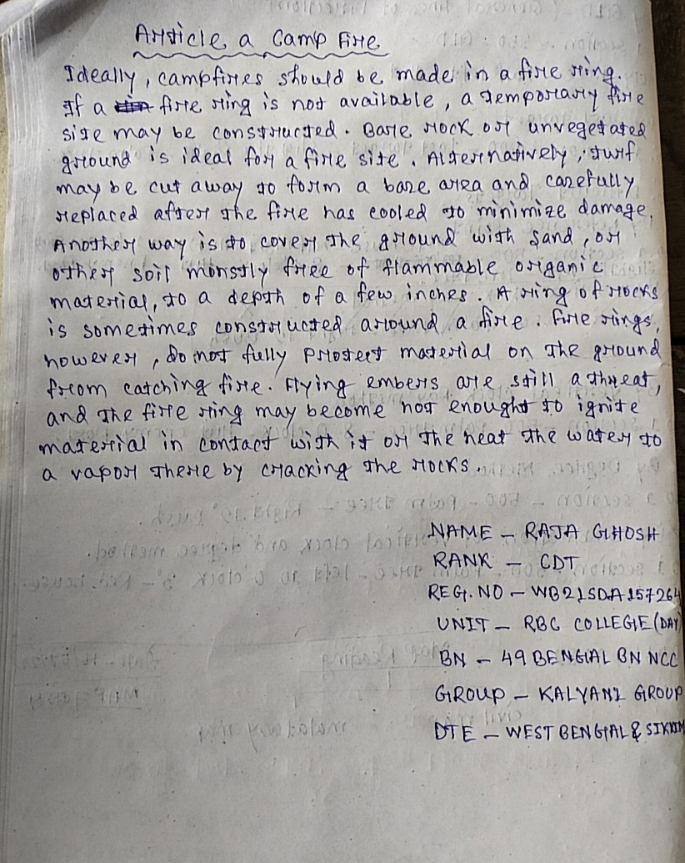 Article a Camp Fire
Ideally, campfires should be made in a fire ring.
If a fire ring is not available, a temporary fire
site may be constructed. Bare rock or unvegetated
ground is ideal for a fire site. Alternatively, turf
may be cut away to form a bare area and carefully
replaced after the fire has cooled to minimize damage.
Another way is to cover the ground with sand, or
other soil monstly free of flammable organic
material, to a depth of a few inches. A ring of rocks
is sometimes constructed around a fire. Fire rings,
however, do not fully protect material on the ground
from catching fire. Flying embers are still a threat,
and the fire ring may become hot enought to ignite
material in contact with it or the heat the water to
a vapor there by cracking the rocks.
NAME - RAJA GHOSH
RANK - CDT
REG. NO - WB21SDA157264
UNIT - RBC COLLEGE (DAY)
BN - 49 BENGAL BN NCC
GROUP - KALYANI GROUP
DTE - WEST BENGAL & SIKKIM